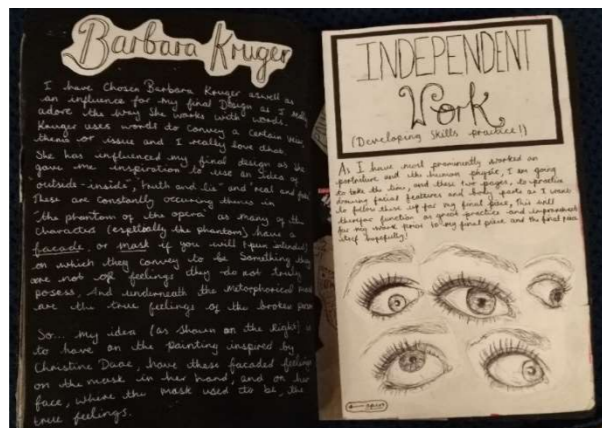 Barbara Kruger
I have chosen Barbara Kruger aswell as
an influence for my final Design as I really
adore the way She works with words.
Kruger uses words to convey a certain
theme or issue and I really love that.
She has influenced my final design as she
gave me inspiration to use an idea of
outside-inside", "truth and lie" and "real and
These are constantly occuring themes in
"the phantom of the opera" as many of the
characters (espitially the phantom) have a
facade, or mask if you will (pun intended)
on which they convey to be Something they
are not or feelings they do not truly
posess, And underneath the metaphorical
are the true feelings of the broken
So... my idea (as shown on the right) is
to have on the painting inspired by
Christine Daae, have these facaded feelings
on the mask in her hand, and on her
face, where the mask used to be, the
true feelings.
INDEPENDENT
Work
(Developing Skills practice!)
As I have most prominently worked on
portraiture and the human physic, I am going
to take the time, and these two pages, to practice
drawing facial features and body parts as I want
to follow these up for my final piece, This will
therefore function as great practice and improvement
for my work prior to my final piece and the final piece
itself hopefully!